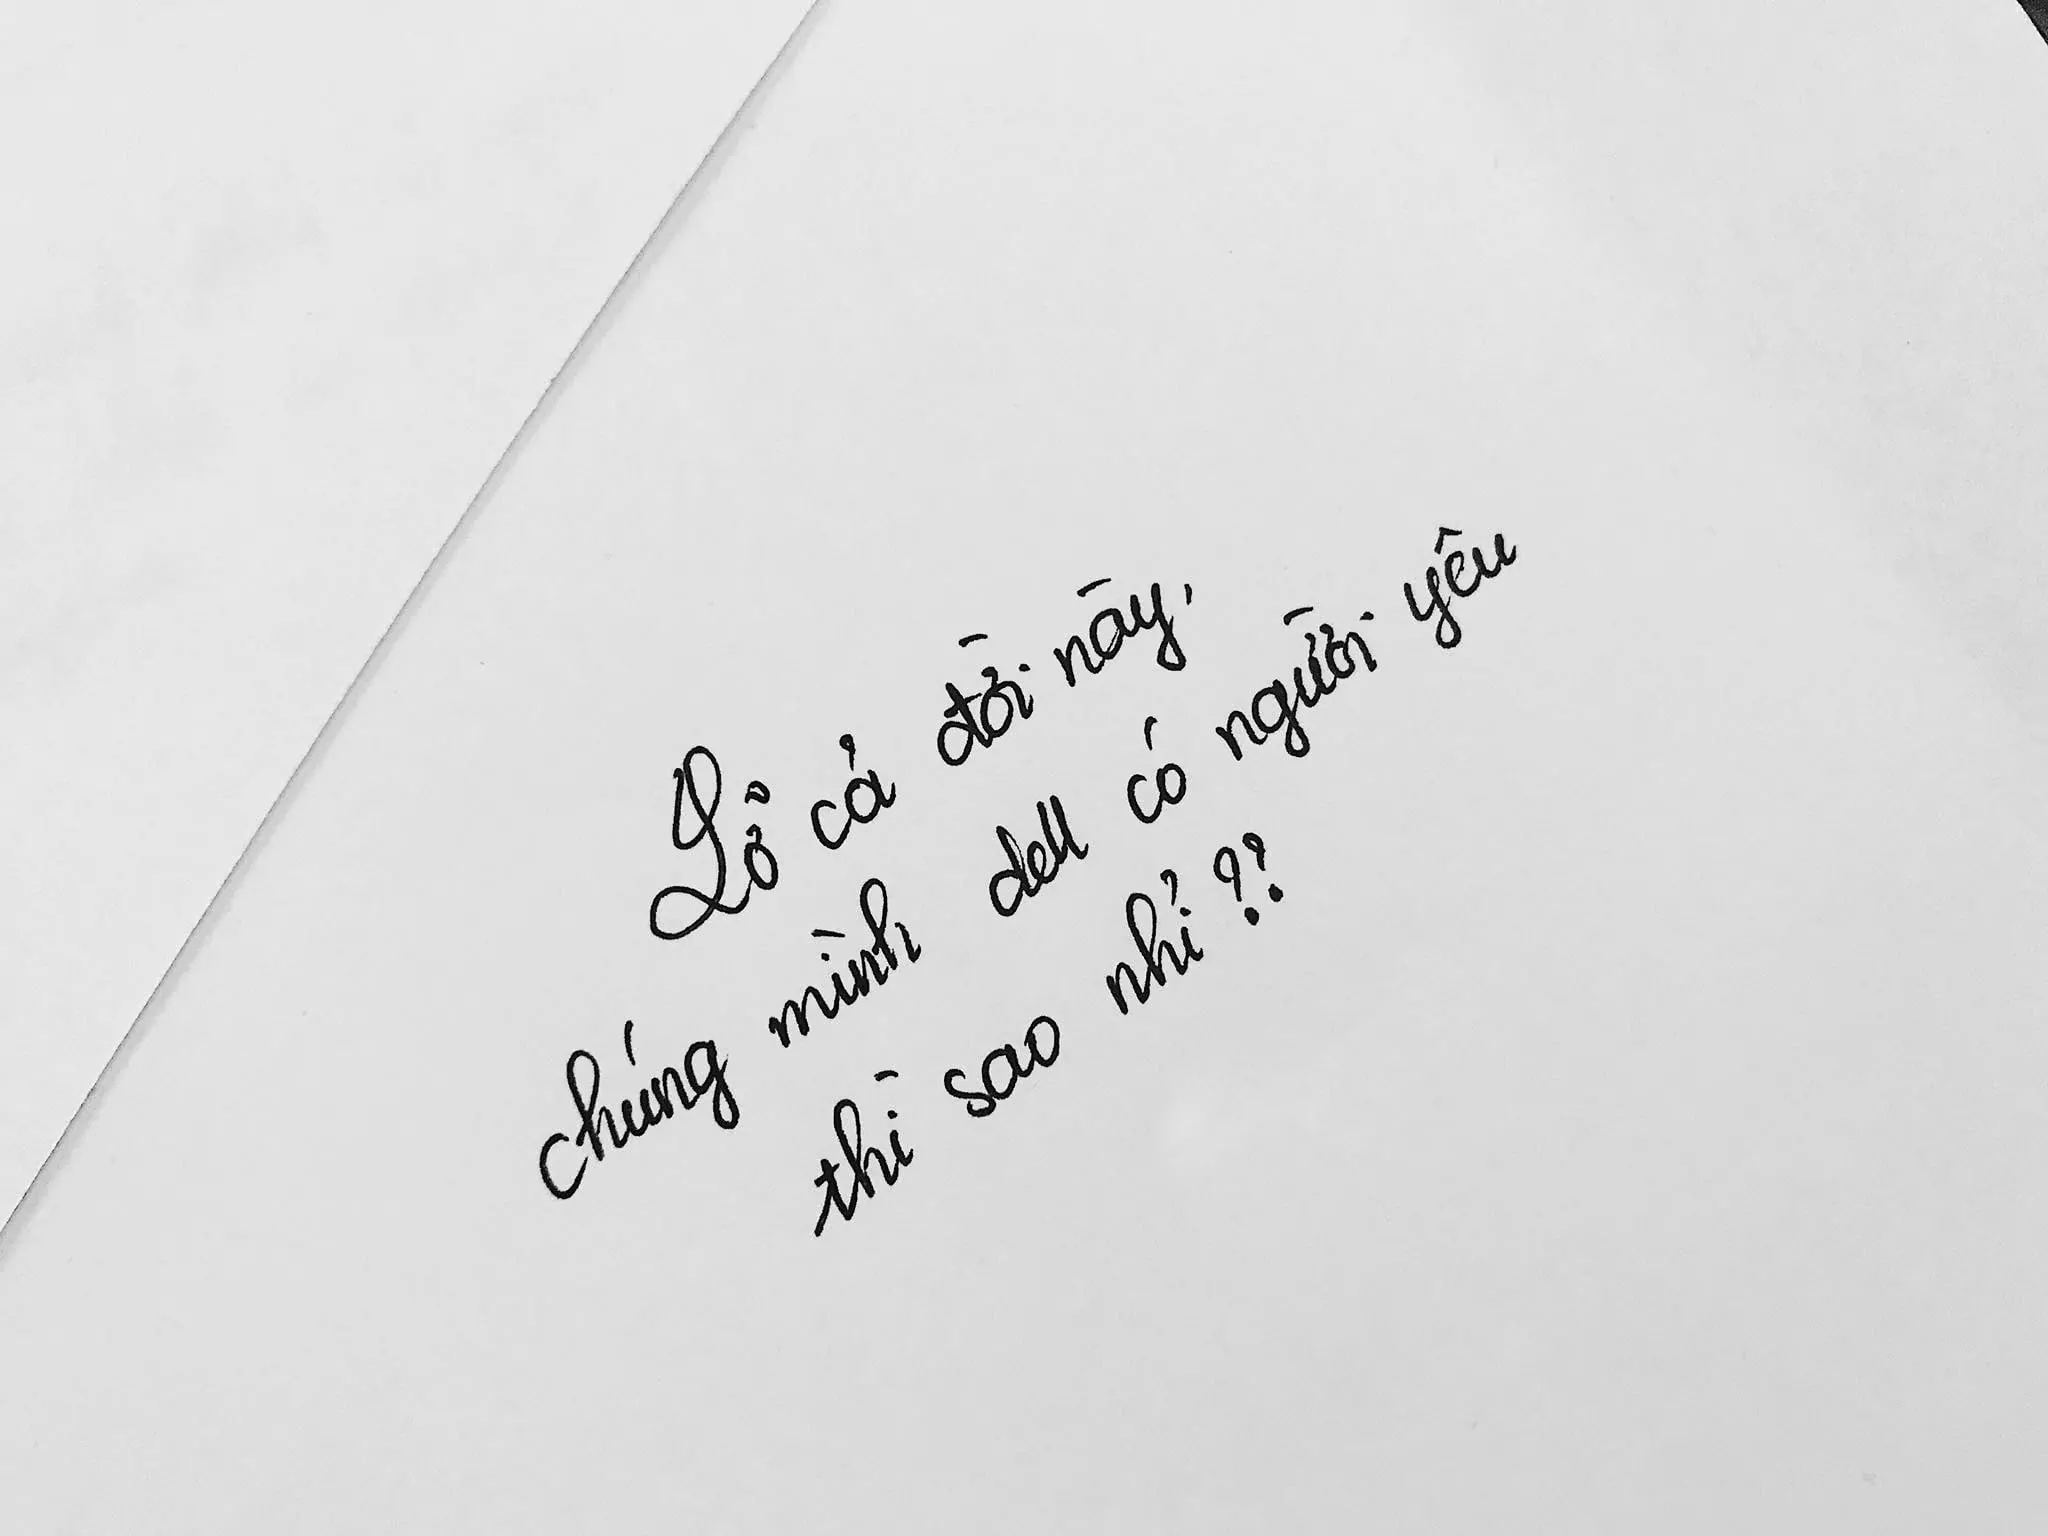 Lỡ cả đời này,
chúng mình dell có người yêu
thì sao nhỉ??